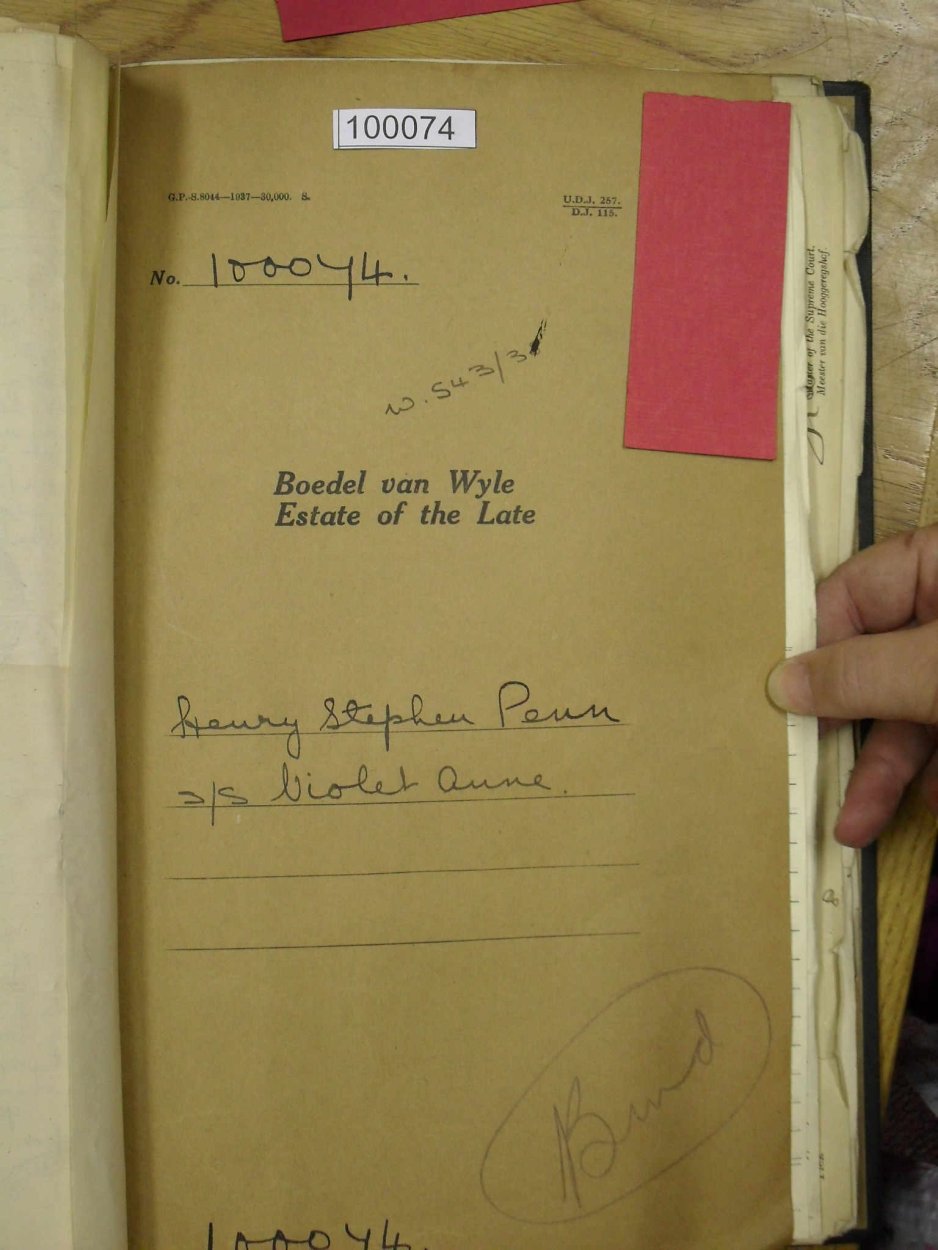 100074
G.P.-S.8044—1937—30,000. S.
U.D.J. 257.
D.J. 115.
No. 100074.
W. 543/3
Boedel van Wyle
Estate of the Late
Henry Stephen Penn
s/s Violet Anne.
Bund
100074.
Master of the Supreme Court.
Meester van die Hooggeregshof.
8